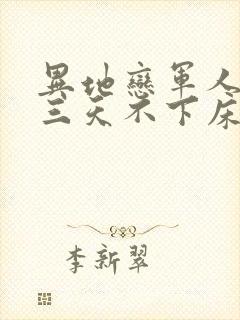 異地戀軍人
三天不下床
李新翠